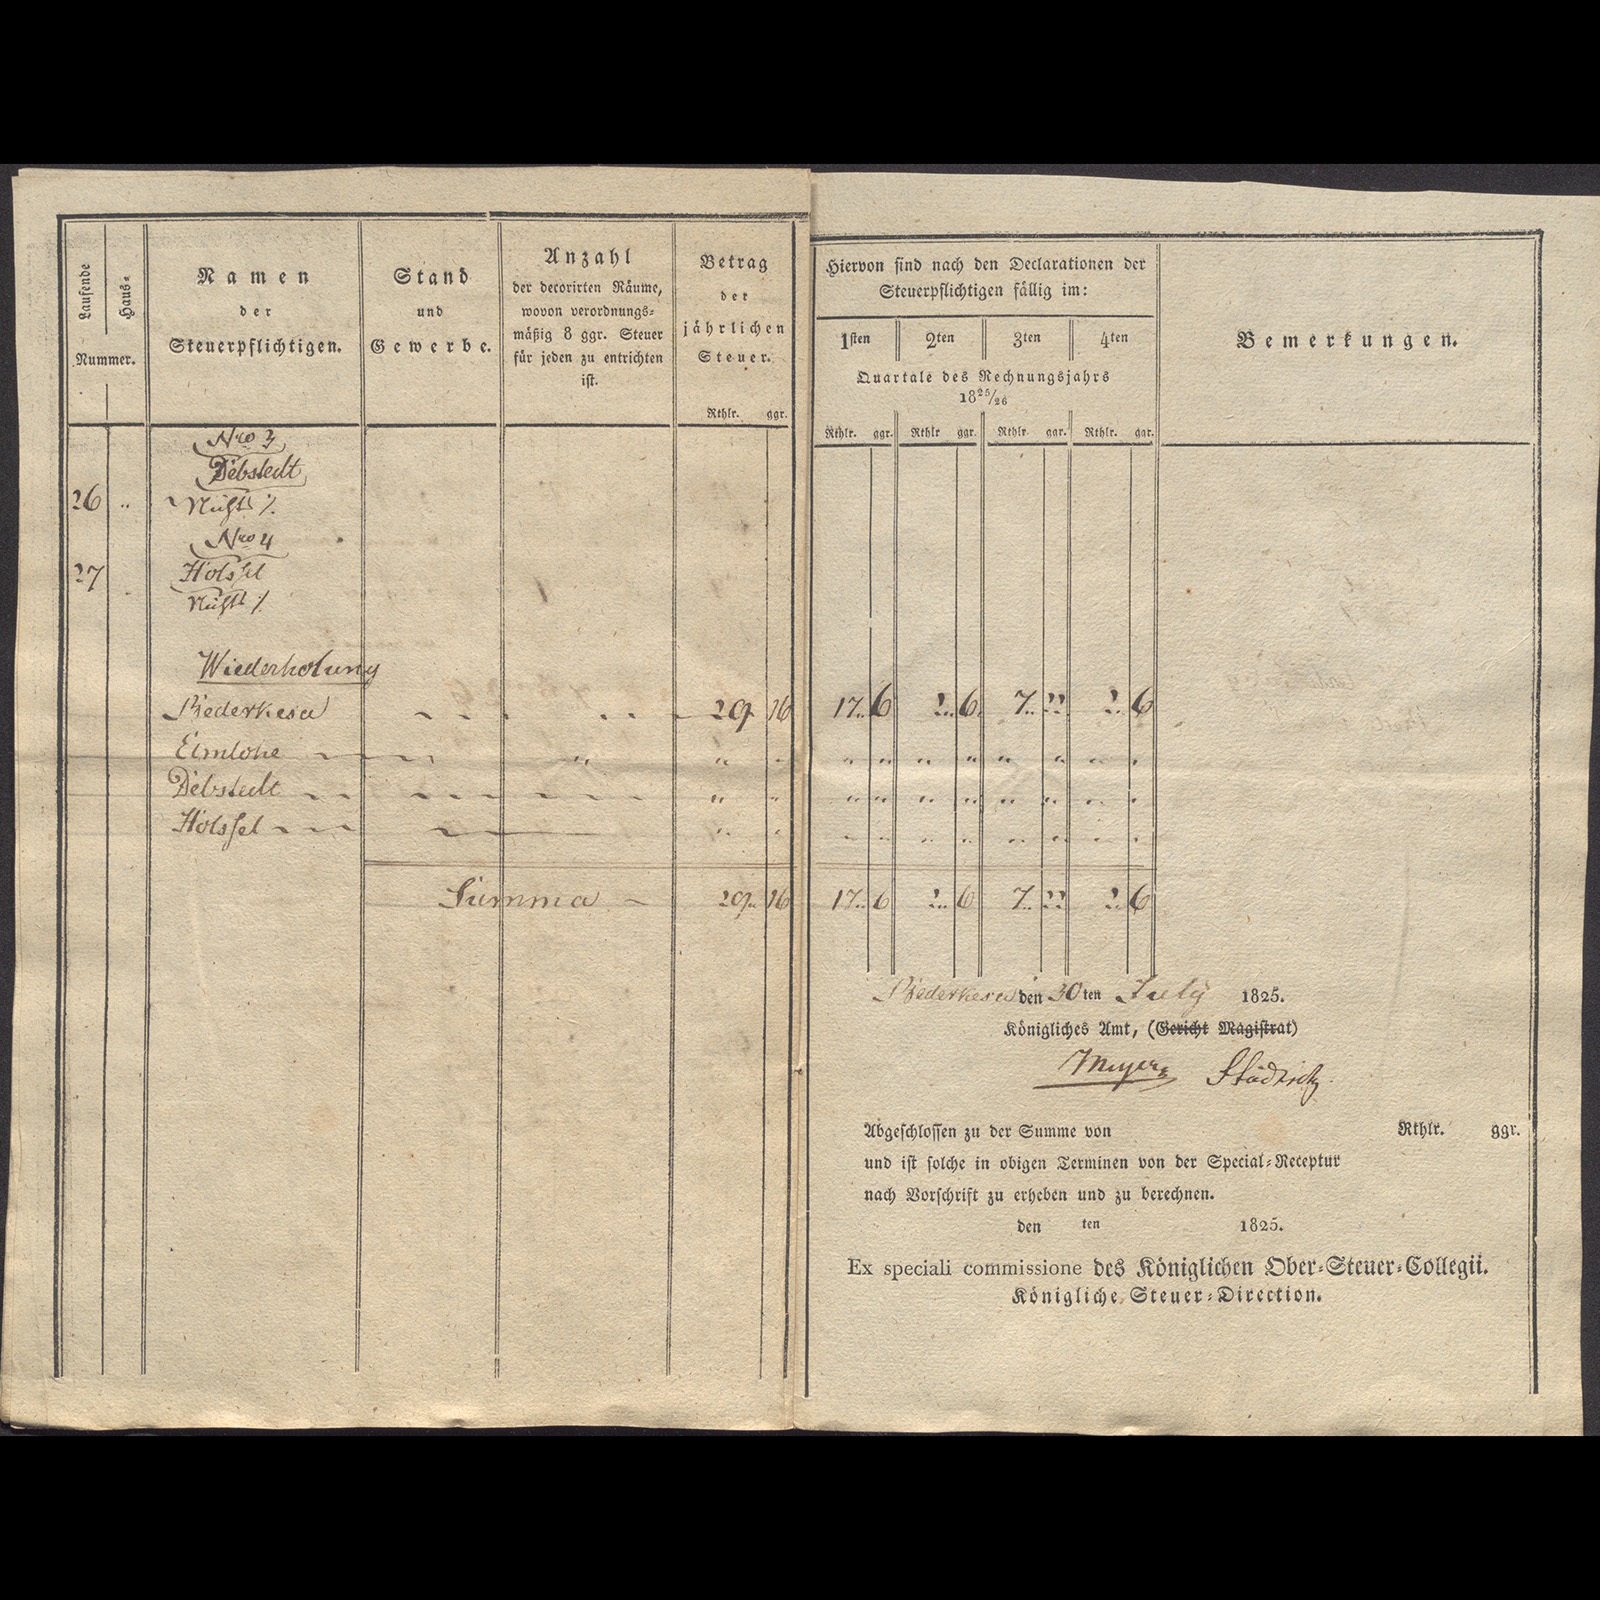 Laufende
Haus=
Nummer.
Namen
der
Steuerpflichtigen.
Stand
und
Gewerbe.
Anzahl
der decorirten Räume,
wovon verordnungs=
mäßig 8 ggr. Steuer
für jeden zu entrichten
ist.
Betrag
der
jährlichen
Steuer.
Rthlr. ggr.
Hiervon sind nach den Declarationen der
Steuerpflichtigen fällig im:
1sten 2ten 3ten 4ten
Quartale des Rechnungsjahrs
18 25/26
Rthlr. ggr. Rthlr ggr. Rthlr ggr. Rthlr. ggr.
Bemerkungen.
Nro 3
Debstedt
26 " Nichts ./.
Nro 4
27 Holssel
Nichts ./.
Wiederholung
Bederkesa 29 16 17 6 2 6 7 22 2 6
Elmlohe " " " " " " " " " " "
Debstedt " " " " " " " " " "
Holssel " " " " " " " " " "
Summa 29 16 17 6 2 6 7 22 2 6
Bederkesa den 30ten July 1825.
Königliches Amt, (Gericht Magistrat)
Meyer
Abgeschlossen zu der Summe von Rthlr. ggr.
und ist solche in obigen Terminen von der Special=Receptur
nach Vorschrift zu erheben und zu berechnen.
den ten 1825.
Ex speciali commissione des Königlichen Ober=Steuer=Collegii.
Königliche Steuer=Direction.